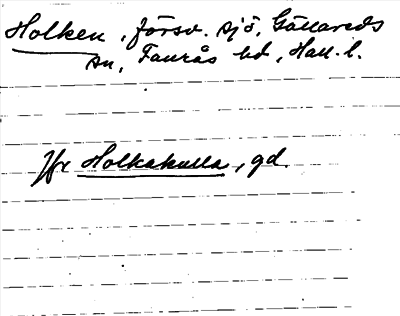 Holken, försv. sjö, Gällareds
sn, Faurås hd, Hall. l.
Jfr Holkakulla, gd.